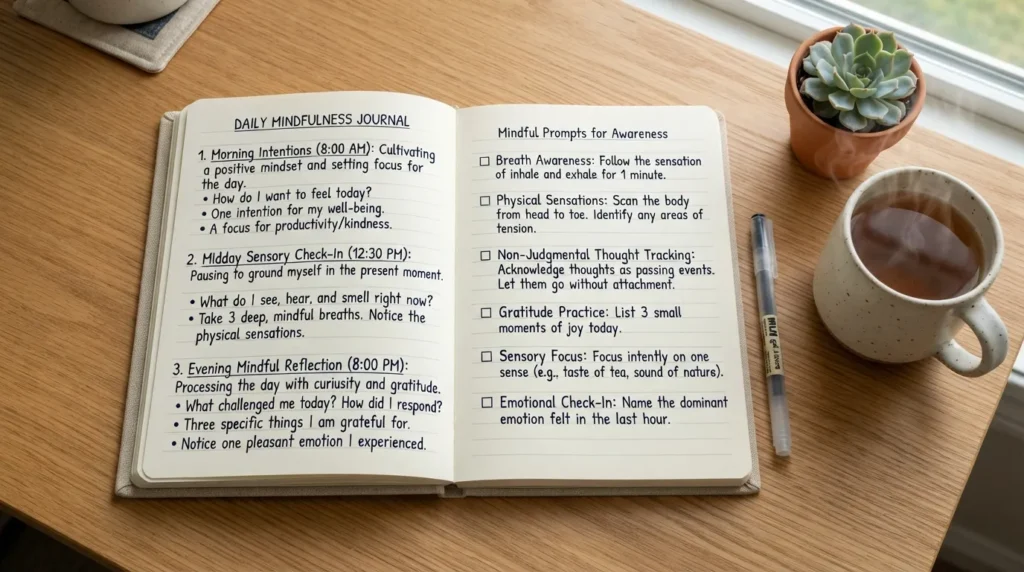 DAILY MINDFULNESS JOURNAL
1. Morning Intentions (8:00 AM): Cultivating
a positive mindset and setting focus for
the day.
• How do I want to feel today?
• One intention for my well-being.
• A focus for productivity/kindness.
2. Midday Sensory Check-In (12:30 PM):
Pausing to ground myself in the present moment.
• What do I see, hear, and smell right now?
• Take 3 deep, mindful breaths. Notice the
physical sensations.
3. Evening Mindful Reflection (8:00 PM):
Processing the day with curiusity and gratitude.
• What challenged me today? How did I respond?
• Three specific things I am grateful for.
• Notice one pleasant emotion I experienced.
Mindful Prompts for Awareness
☐ Breath Awareness: Follow the sensation
of inhale and exhale for 1 minute.
☐ Physical Sensations: Scan the body
from head to toe. Identify any areas of
tension.
☐ Non-Judgmental Thought Tracking:
Acknowledge thoughts as passing events.
Let them go without attachment.
☐ Gratitude Practice: List 3 small
moments of joy today.
☐ Sensory Focus: Focus intently on one
sense (e.g., taste of tea, sound of nature).
☐ Emotional Check-In: Name the dominant
emotion felt in the last hour.